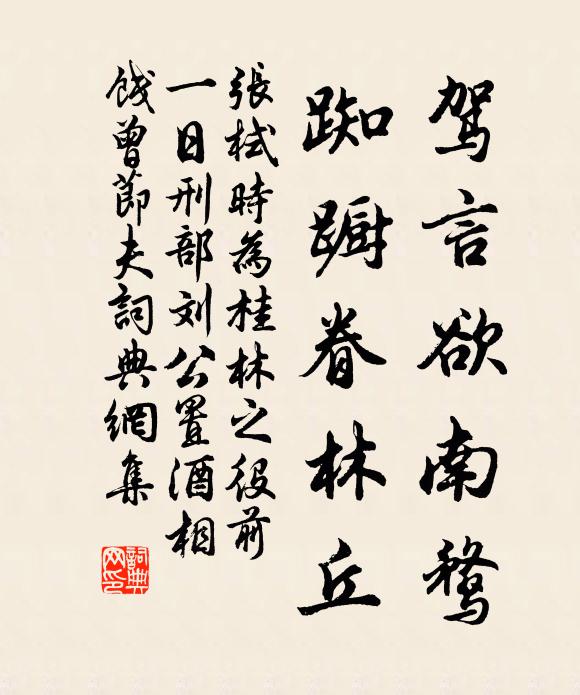 驾言欲南鹜
踟蹰眷林丘
張栻時為桂林之役前
一日刑部刘公置酒相
餞曾節夫詞典網集
詞典网印